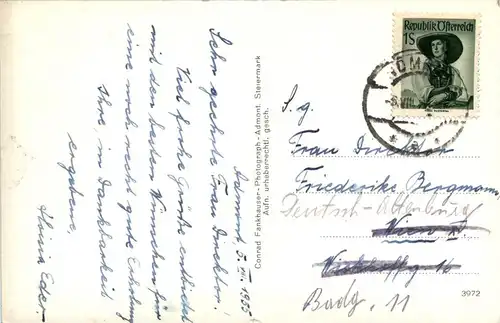 Admont, 5.VII.1955
Sehr geehrte Frau Direktor!
Viel frohe Grüße entbietet
mit den besten Wünschen für
eine noch recht gute Erholung
Ihre, in Dankbarkeit
ergebene,
Eder.
Conrad Fankhauser-Photograph-Admont, Steiermark
Aufn. urheberrechtl. gesch.
Republik Österreich
1S
S. g.
Frau Direktor
Friederike Bergmann
Deutsch-Altenburg
Wien
Badg. 11
3972